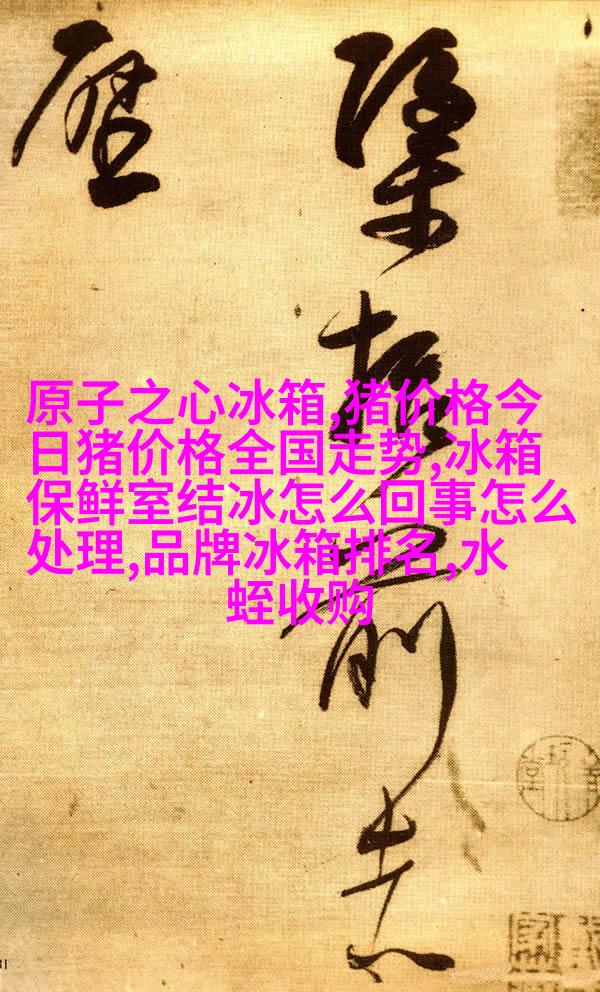 原子之心冰箱,猪价格今
日猪价格全国走势,冰箱
保鲜室结冰怎么回事怎么
处理,品牌冰箱排名,水
蛭收购
前志
歷